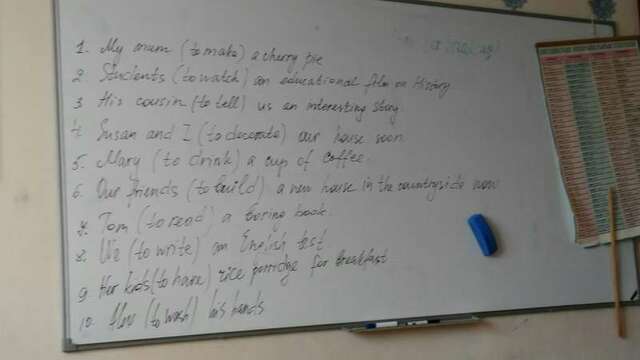 1. My mum (to make) a cherry pie
2 Students (to watch) an educational film on History
3 His cousin (to tell) us an interesting story
4. Susan and I (to decorate) our house soon.
5. Mary (to drink) a cup of coffee.
6. Our friends (to build) a new house in the countryside now
7. Tom (to read) a boring book.
8. We (to write) an English test
9. Her kids (to have) rice porridge for breakfast
10. (to wash) his hands